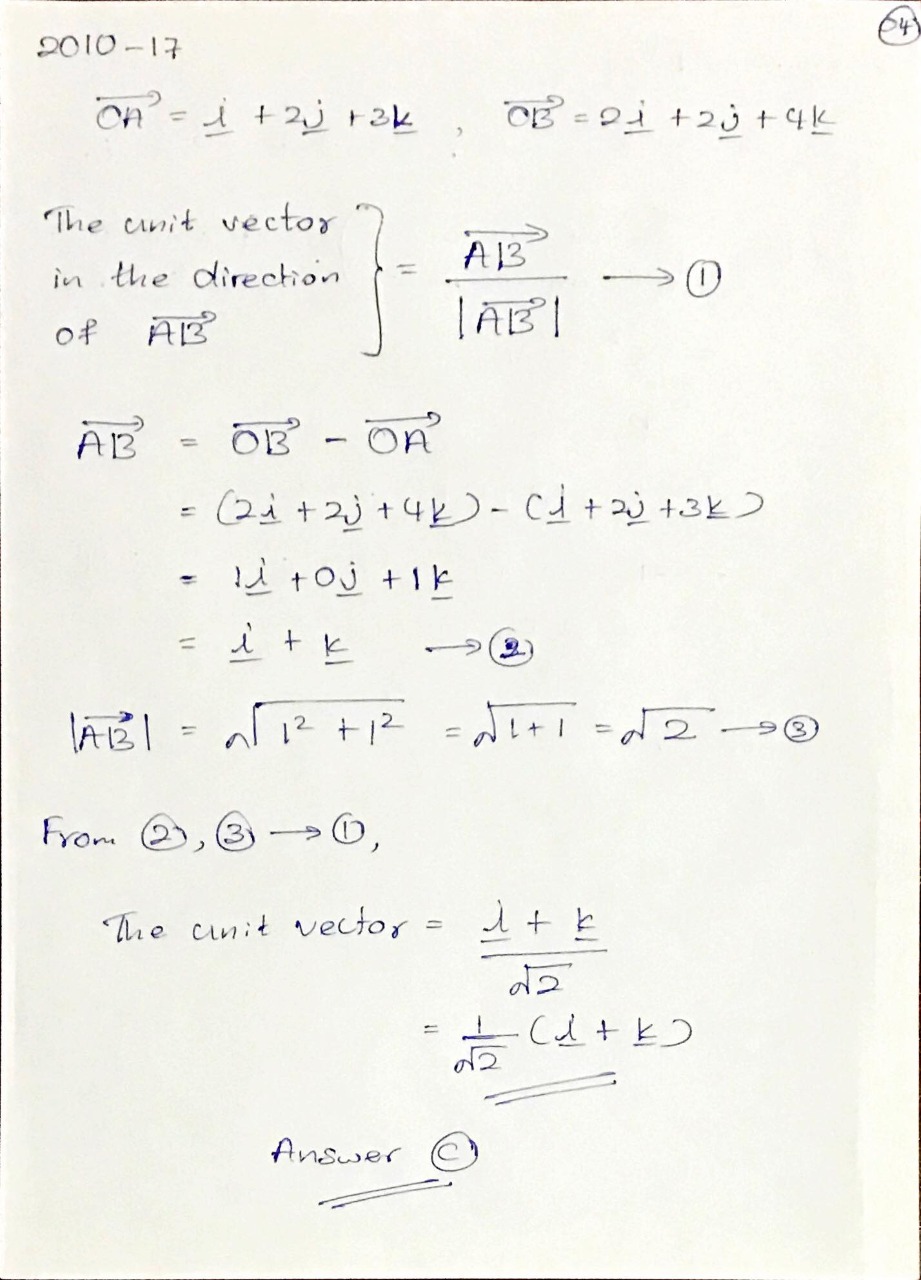 04
2010-17
OA = i + 2j + 3k , OB = 2i + 2j + 4k
The unit vector
in the direction
of AB
} = AB / |AB| → ①
AB = OB - OA
= (2i + 2j + 4k) - (i + 2j + 3k)
= 1i + 0j + 1k
= i + k → ②
|AB| = √1² + 1² = √1+1 = √2 → ③
From ②, ③ → ①,
The unit vector = i + k / √2
= 1/√2 (i + k)
Answer Ⓒ